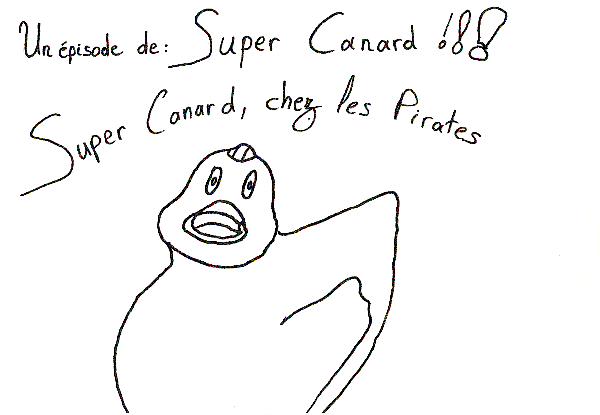 Un épisode de: Super Canard !!!
Super Canard, chez les Pirates